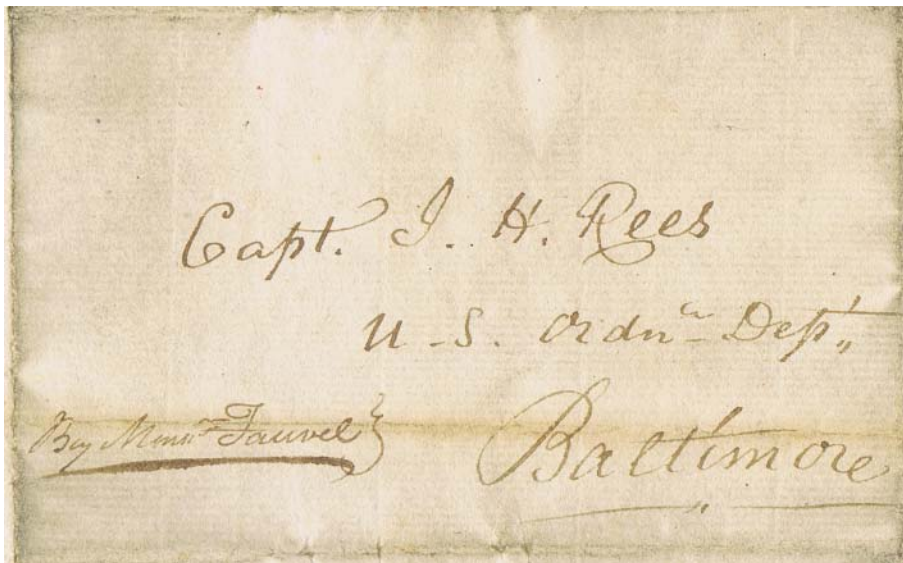 Capt. J. H. Rees
U. S. Ordnce Dept.
By Monsr. Fauvel
Baltimore